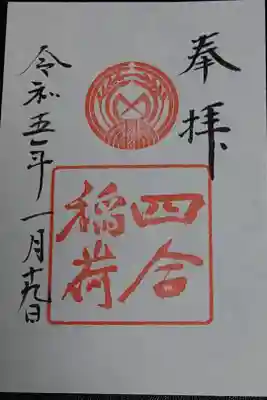 奉拝
四合
稲荷
令和五年一月十九日